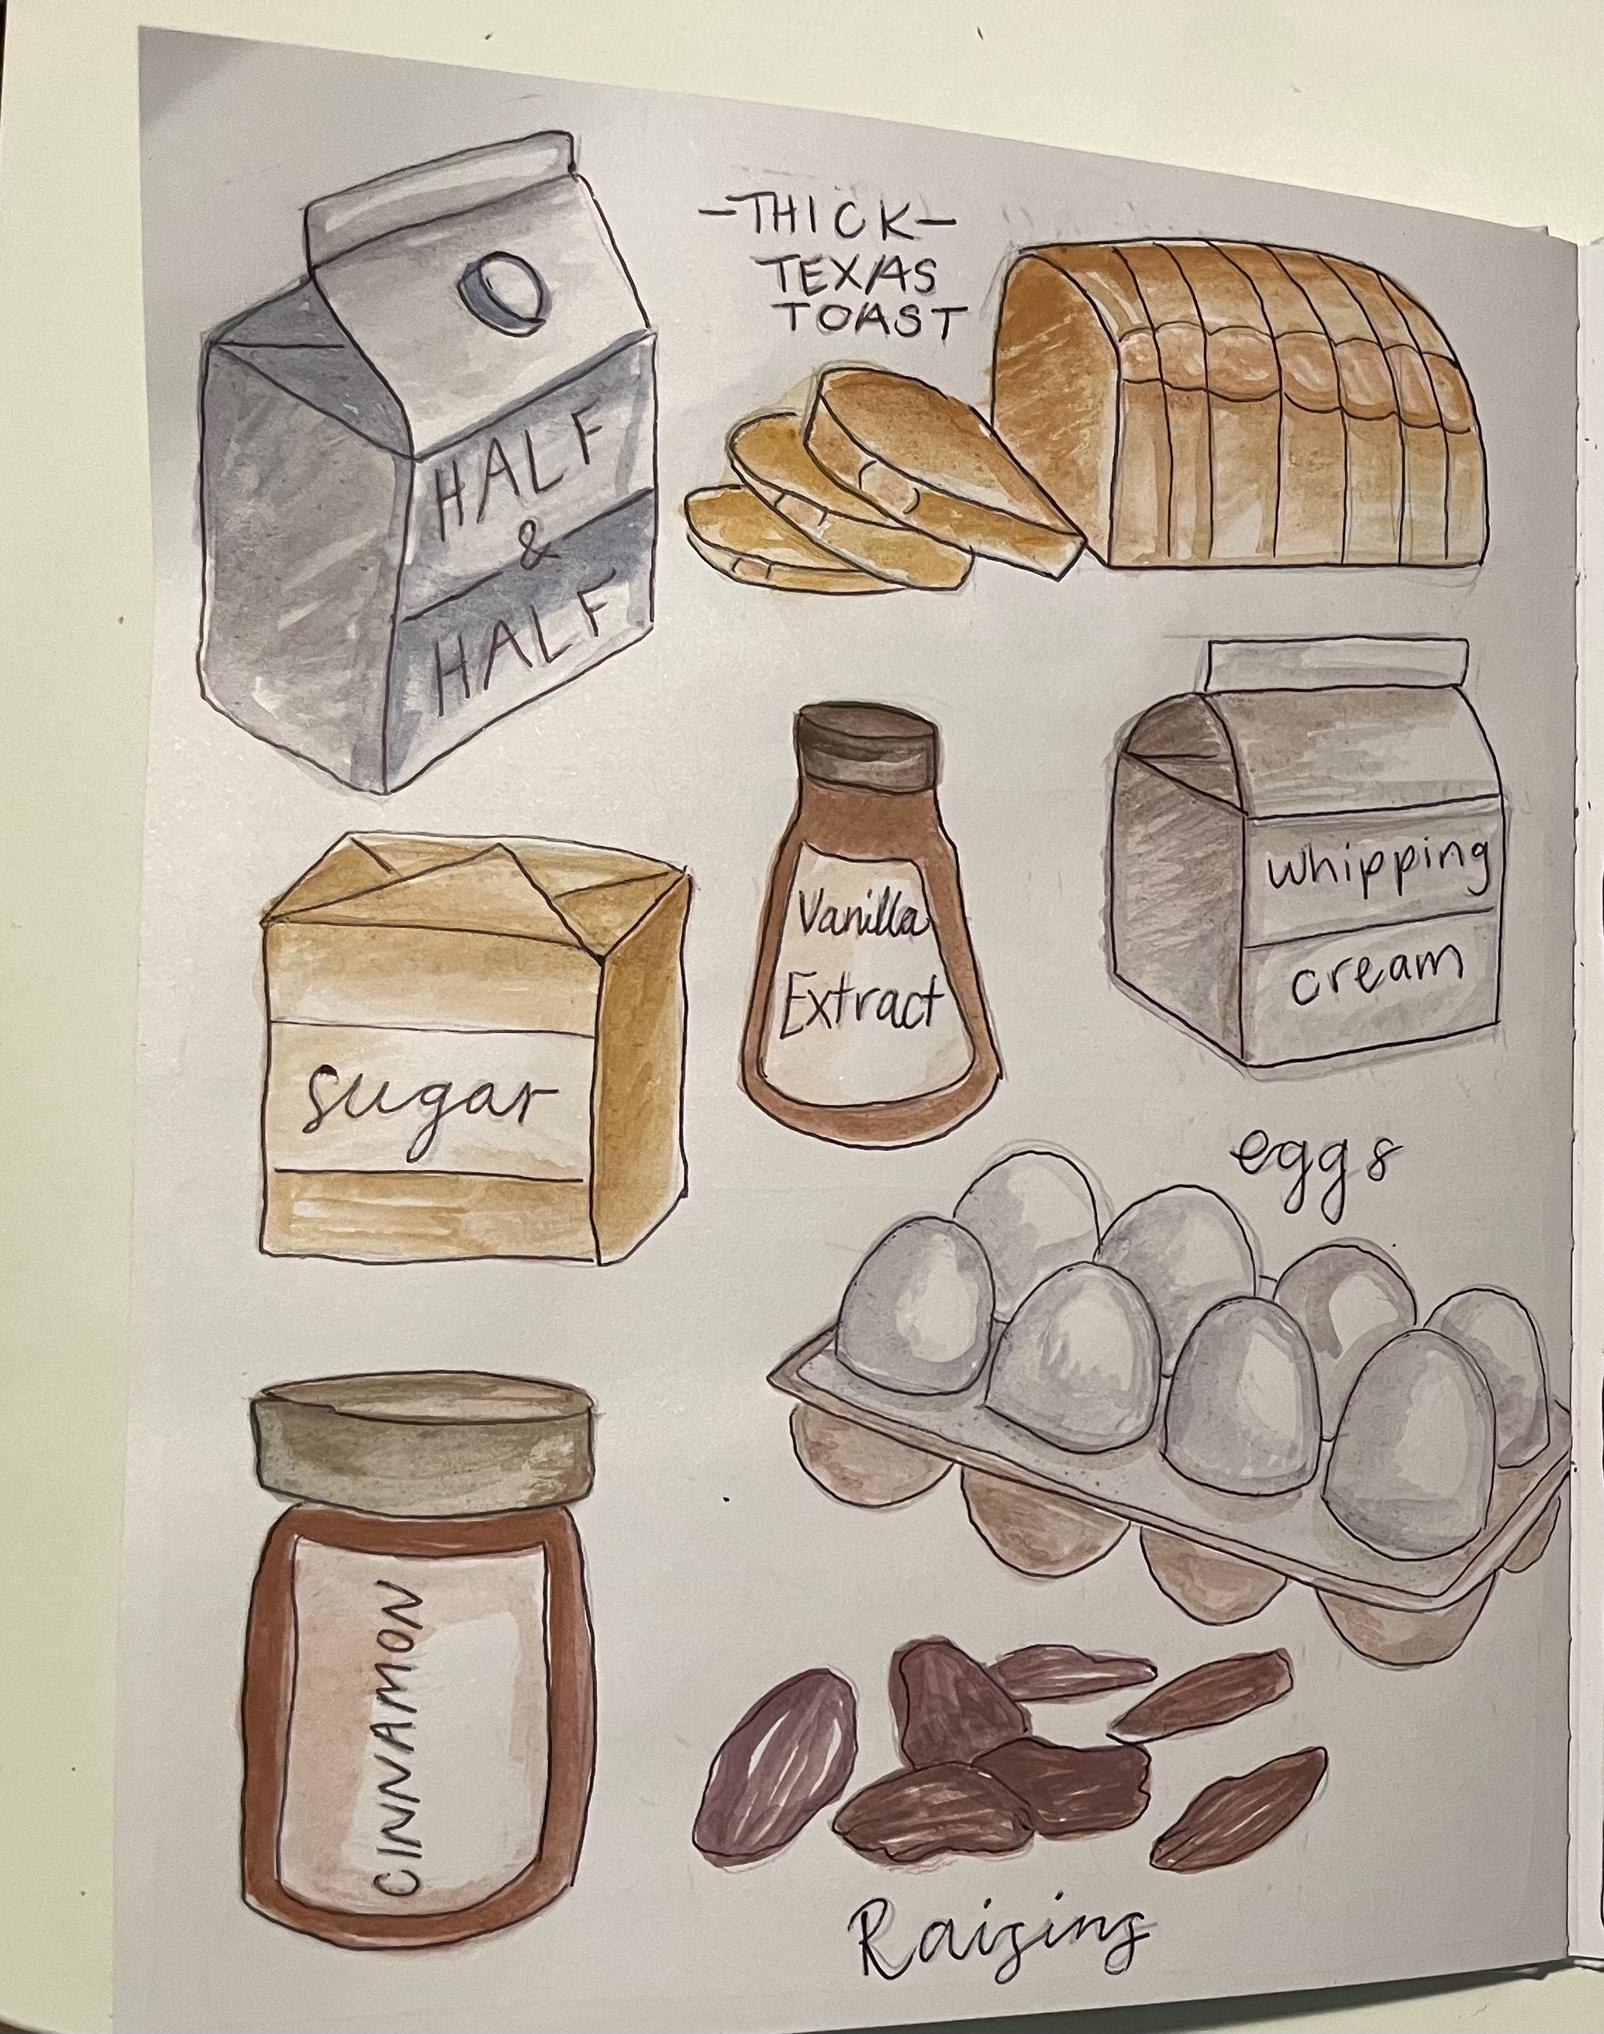 -THICK-
TEXAS
TOAST
HALF
&
HALF
whipping
cream
Vanilla
Extract
sugar
eggs
CINNAMON
Raisins